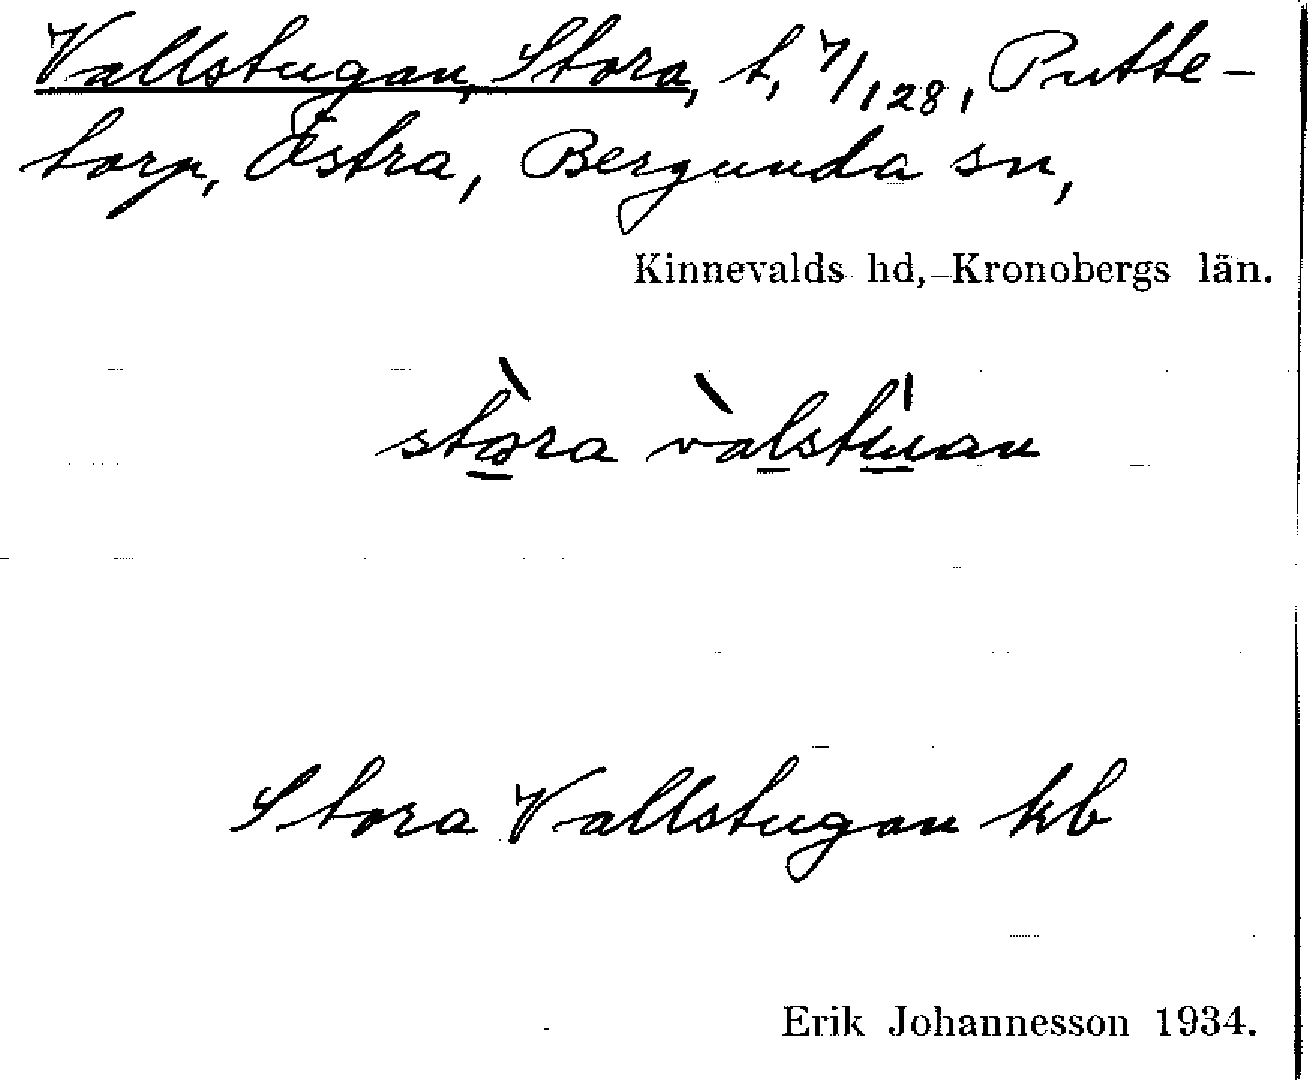 Vallstugan, Stora, t, 7/128, Putte-
torp, Östra, Bergunda sn,
Kinnevalds hd, Kronobergs län.
stòra vàlstu̍an
Stora Vallstugan kb
Erik Johannesson 1934.